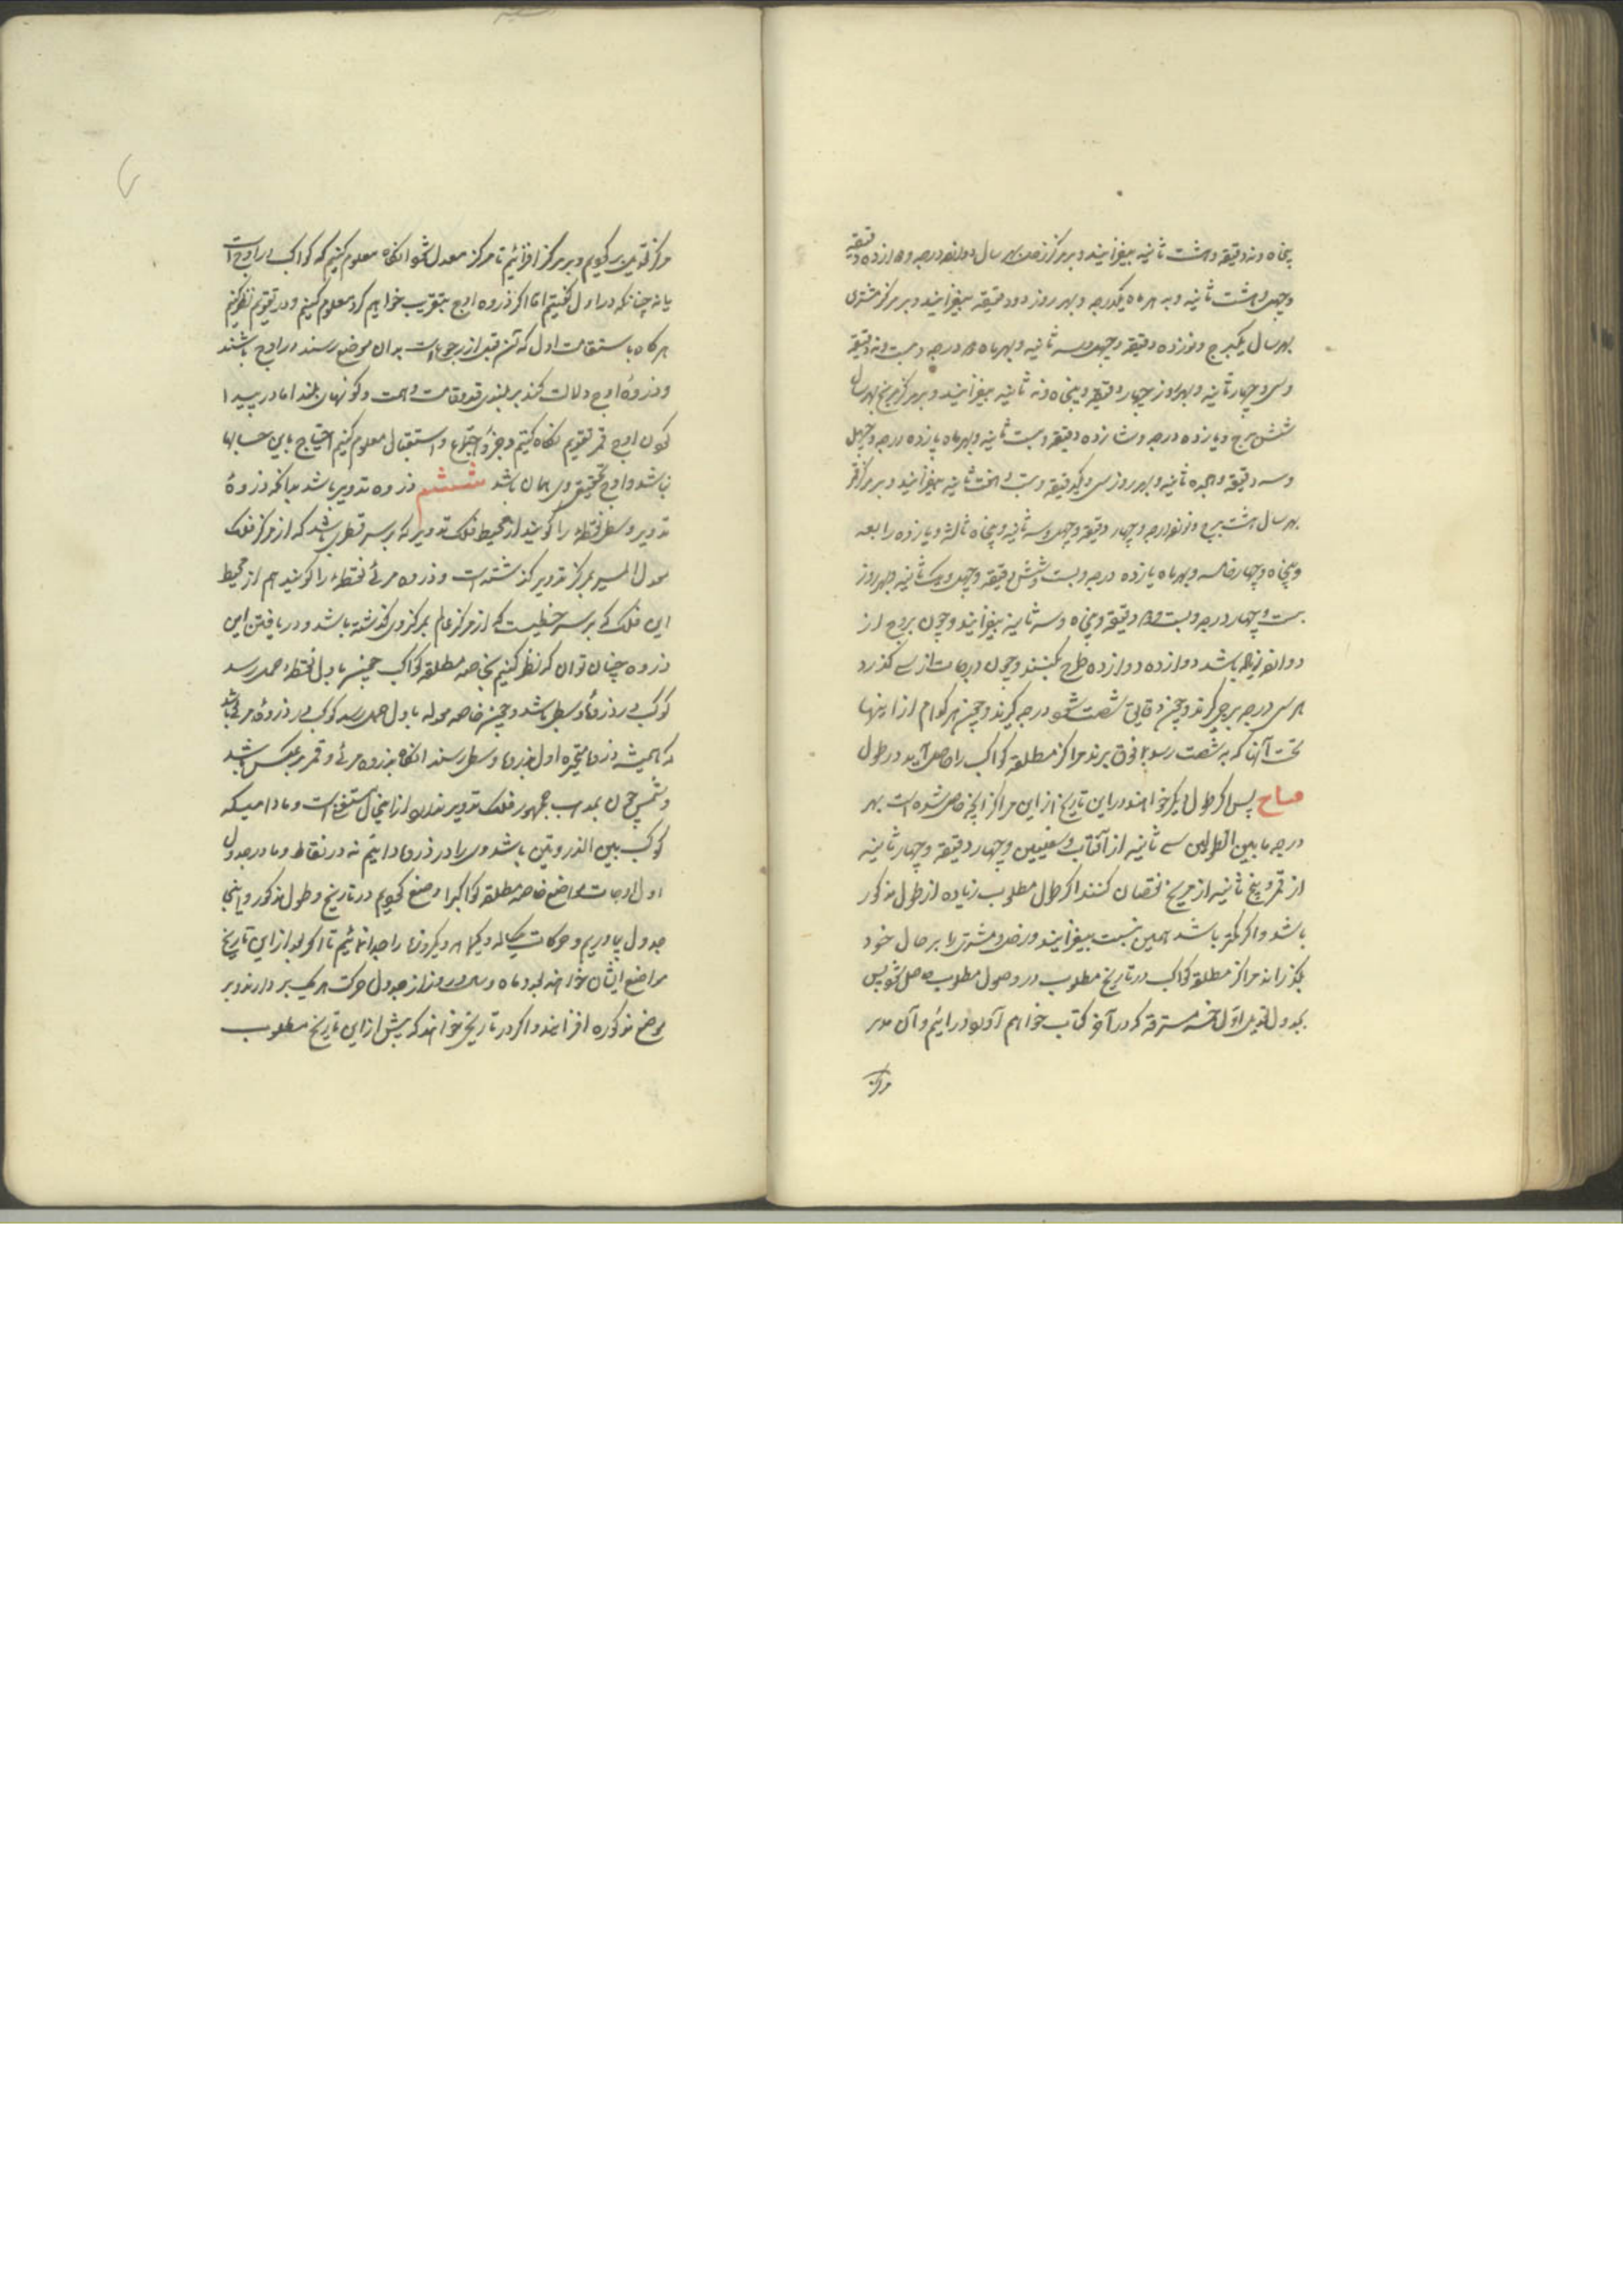 پنجاه و نه دقیقه و هشت ثانیه بیفزایند و بر مرکز زحل بهر سال دوازده درجه و دوازده دقیقه
و چهل و هشت ثانیه و به هر ماه یکدرجه و بهر روز دو دقیقه بیفزایند و بر مرکز مشتری
بهر سال یکبرج و نوزده دقیقه و چهل و سه ثانیه و بهر ماه دو درجه و بیست و نه دقیقه
و سی و چهار ثانیه و بهر روز چهار دقیقه و پنجاه و نه ثانیه بیفزایند و بر مرکز مریخ بهر سال
شش برج و یازده درجه و شانزده دقیقه و بیست ثانیه و بهر ماه پانزده درجه و چهل
و سه دقیقه و هجده ثانیه و بهر روز سی و یکدقیقه و بیست و هفت ثانیه بیفزایند و بر مرکز قمر
بهر سال هشت برج و نوزده درجه و چهار دقیقه و چهل و سه ثانیه و پنجاه ثالثه و یازده رابعه
و پنجاه و چهار خامسه و بهر ماه یازده درجه و بیست و شش دقیقه و چهل و یک ثانیه و بهر روز
بیست و چهار درجه و بیست و دو دقیقه و پنجاه و سه ثانیه بیفزایند و چون بروج از
دوازده زیاده باشد دوازده دوازده طرح بکنند و چون درجات از سی گذرد
هر سی درجه برجی گیرند و چون دقایق شصت شود درجه گیرند و همچنین هر کدام از اینها
تحت آنها که به شصت رسد بما فوق برند مراکز مطلقه کواکب را حاصل آید در طول
صباح پس اگر طول دیگر خواهند در این تاریخ از این مراکز آنچه حاصل شده است بهر
درجه ما بین الطولین سی ثانیه از آفتاب و سفلیین و چهار دقیقه و چهار ثانیه
از قمر و پنج ثانیه از مریخ نقصان کنند اگر طول مطلوب زیاده از طول مذکور
باشد و اگر کمتر باشد همین نسبت بیفزایند و زحل و مشتری را بر حال خود
بگذرانند مراکز مطلقه کواکب در تاریخ مطلوب در وصول مطلوب حاصل شود پس
بجدول تعدیل اول خمسه مسترقه که در آخر کتاب خواهیم آورد در آئیم و آن
مرکز
مرکز تعدیل بر گیریم و بر مرکز افزائیم تا مرکز معدل شود آنگاه معلوم کنیم که کواکب در اوج است
یا نه چنانکه در اول گفتیم اما اگر ذروه اوج بتقریب خواهیم کرد معلوم کنیم و در تقویم نظر کنیم
هر گاه باستقامت اول که قبل از رجوع است بدان موضع رسند در اوج باشند
و ذروهٔ اوج دلالت کند بر بلندی قد و قامت و همت و کونهای بلند اما در پیدا
کردن اوج قمر تقویم نگاه کنیم و جزو اجتماع و استقبال معلوم کنیم احتیاج باین حسابها
نباشد و اوج حقیقی وی همان باشد ششم ذروه تدویر باشد بدانکه ذروهٔ
تدویر وسطی نقطه را گویند از محیط فلک تدویر که بر سر قطری باشد که از مرکز فلک
معدل المسیر بمرکز تدویر گذشته است و ذروه مرئی نقطه را گویند هم از محیط
این فلک که بر سر خطیست که از مرکز عالم بمرکز وی گذشته باشد و دریافتن این
ذروه چنان توان که نظر کنیم بخاصه مطلقه کواکب چون باول نقطه حمل رسد
کوکب در ذروهٔ وسطی باشد و چون خاصه معدله باول حمل رسد کوکب در ذروهٔ مرئی باشد
که همیشه متحیره اول بذروه وسطی رسند آنگاه بذروه مرئی و قمر بر عکس باشد
و شمس چون بمذهب جمهور فلک تدویر ندارد از اینحال مستغنی است و مادامیکه
کوکب بین الذروتین باشد وی را در ذروه دانیم نه در نقاط و ما در جدول
اول اوجات مواضع خاصه مطلقه کواکبرا وضع کنیم در تاریخ و طول مذکور و اینجا
جدول بیاوریم و حرکات یکساله و یکماهه و یکروزه را جدا نمائیم تا اگر بعد از این تاریخ
مواضع ایشان خواهند بعدد ماه و سال و روز از جدول حرکت هر یک بر دارند و بر
موضع مذکوره افزایند و اگر در تاریخی خواهند که پیش از این تاریخ مطلوب